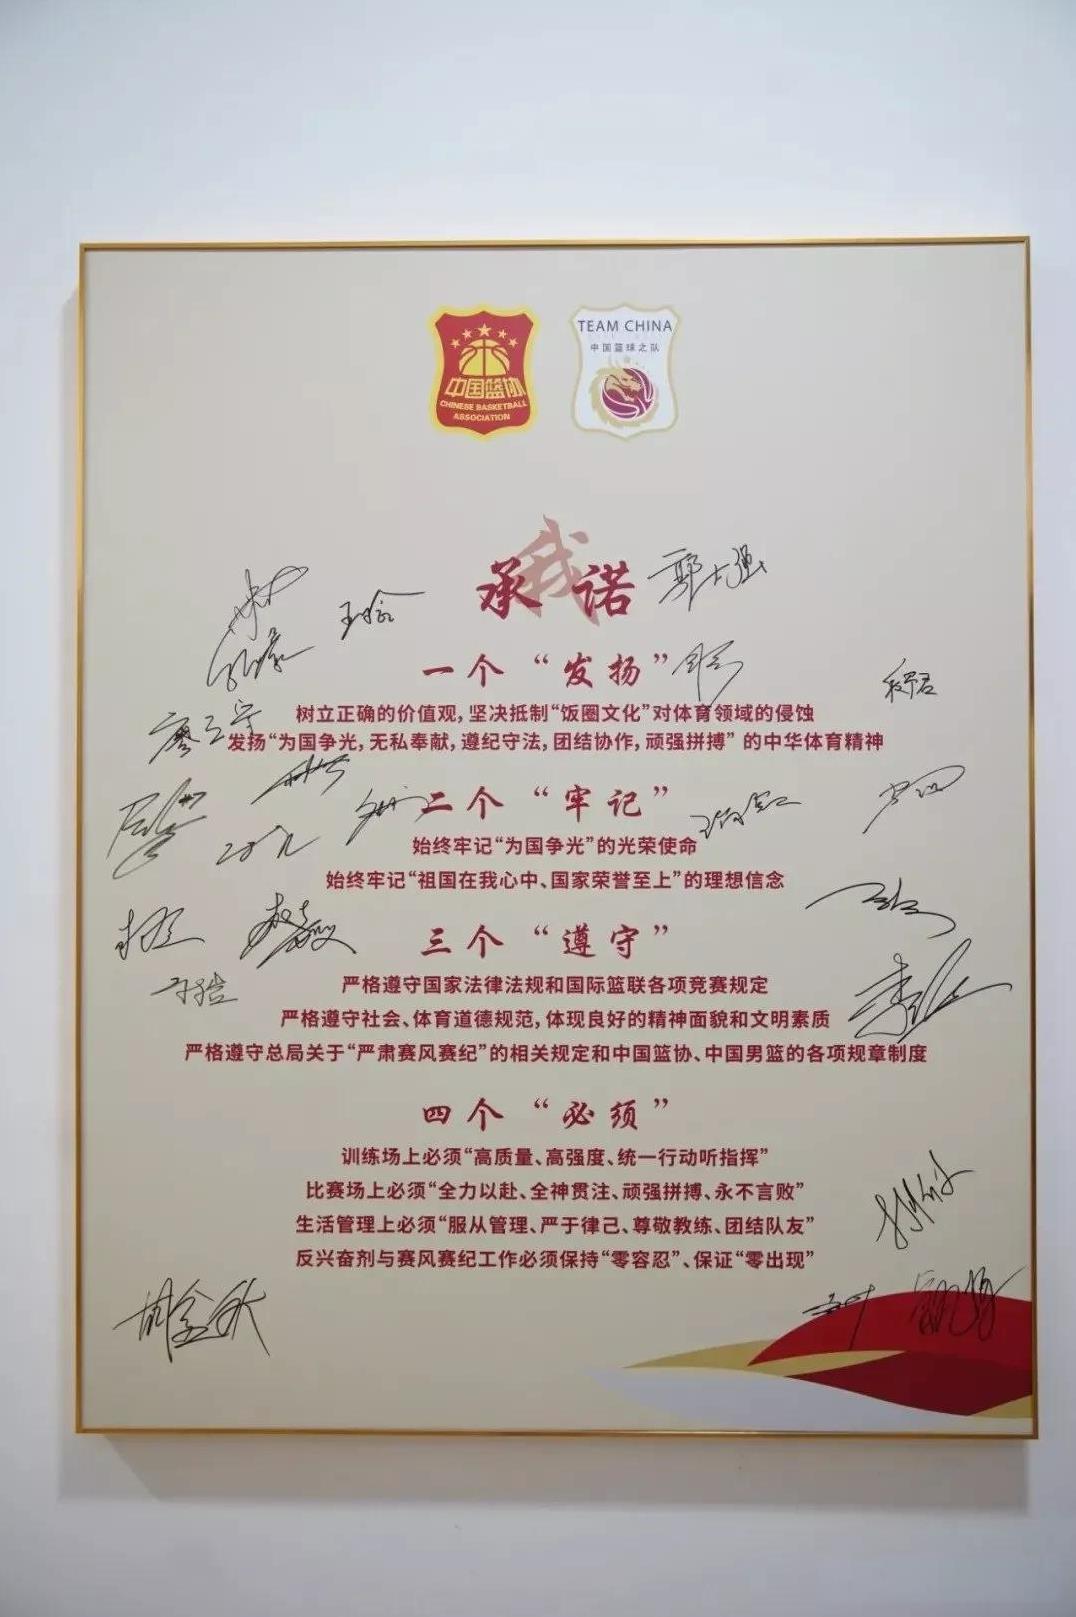 中国篮协
CHINESE BASKETBALL
ASSOCIATION
TEAM CHINA
中国篮球之队
我
承诺
一个“发扬”
树立正确的价值观,坚决抵制“饭圈文化”对体育领域的侵蚀
发扬“为国争光,无私奉献,遵纪守法,团结协作,顽强拼搏” 的中华体育精神
二个“牢记”
始终牢记“为国争光”的光荣使命
始终牢记“祖国在我心中、国家荣誉至上”的理想信念
三个“遵守”
严格遵守国家法律法规和国际篮联各项竞赛规定
严格遵守社会、体育道德规范,体现良好的精神面貌和文明素质
严格遵守总局关于“严肃赛风赛纪”的相关规定和中国篮协、中国男篮的各项规章制度
四个“必须”
训练场上必须“高质量、高强度、统一行动听指挥”
比赛场上必须“全力以赴、全神贯注、顽强拼搏、永不言败”
生活管理上必须“服从管理、严于律己、尊敬教练、团结队友”
反兴奋剂与赛风赛纪工作必须保持“零容忍”、保证“零出现”
郭士强
胡金秋